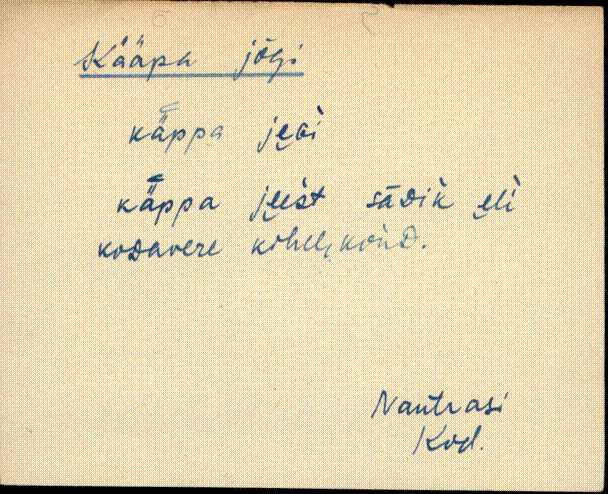 Kääpa jõgi
kä̆ppa je̮ɢi
kä̆ppa je̮est sāᴅik e̮li
koᴅavere kihelkonᴅ.
Nautrasi
Kod.